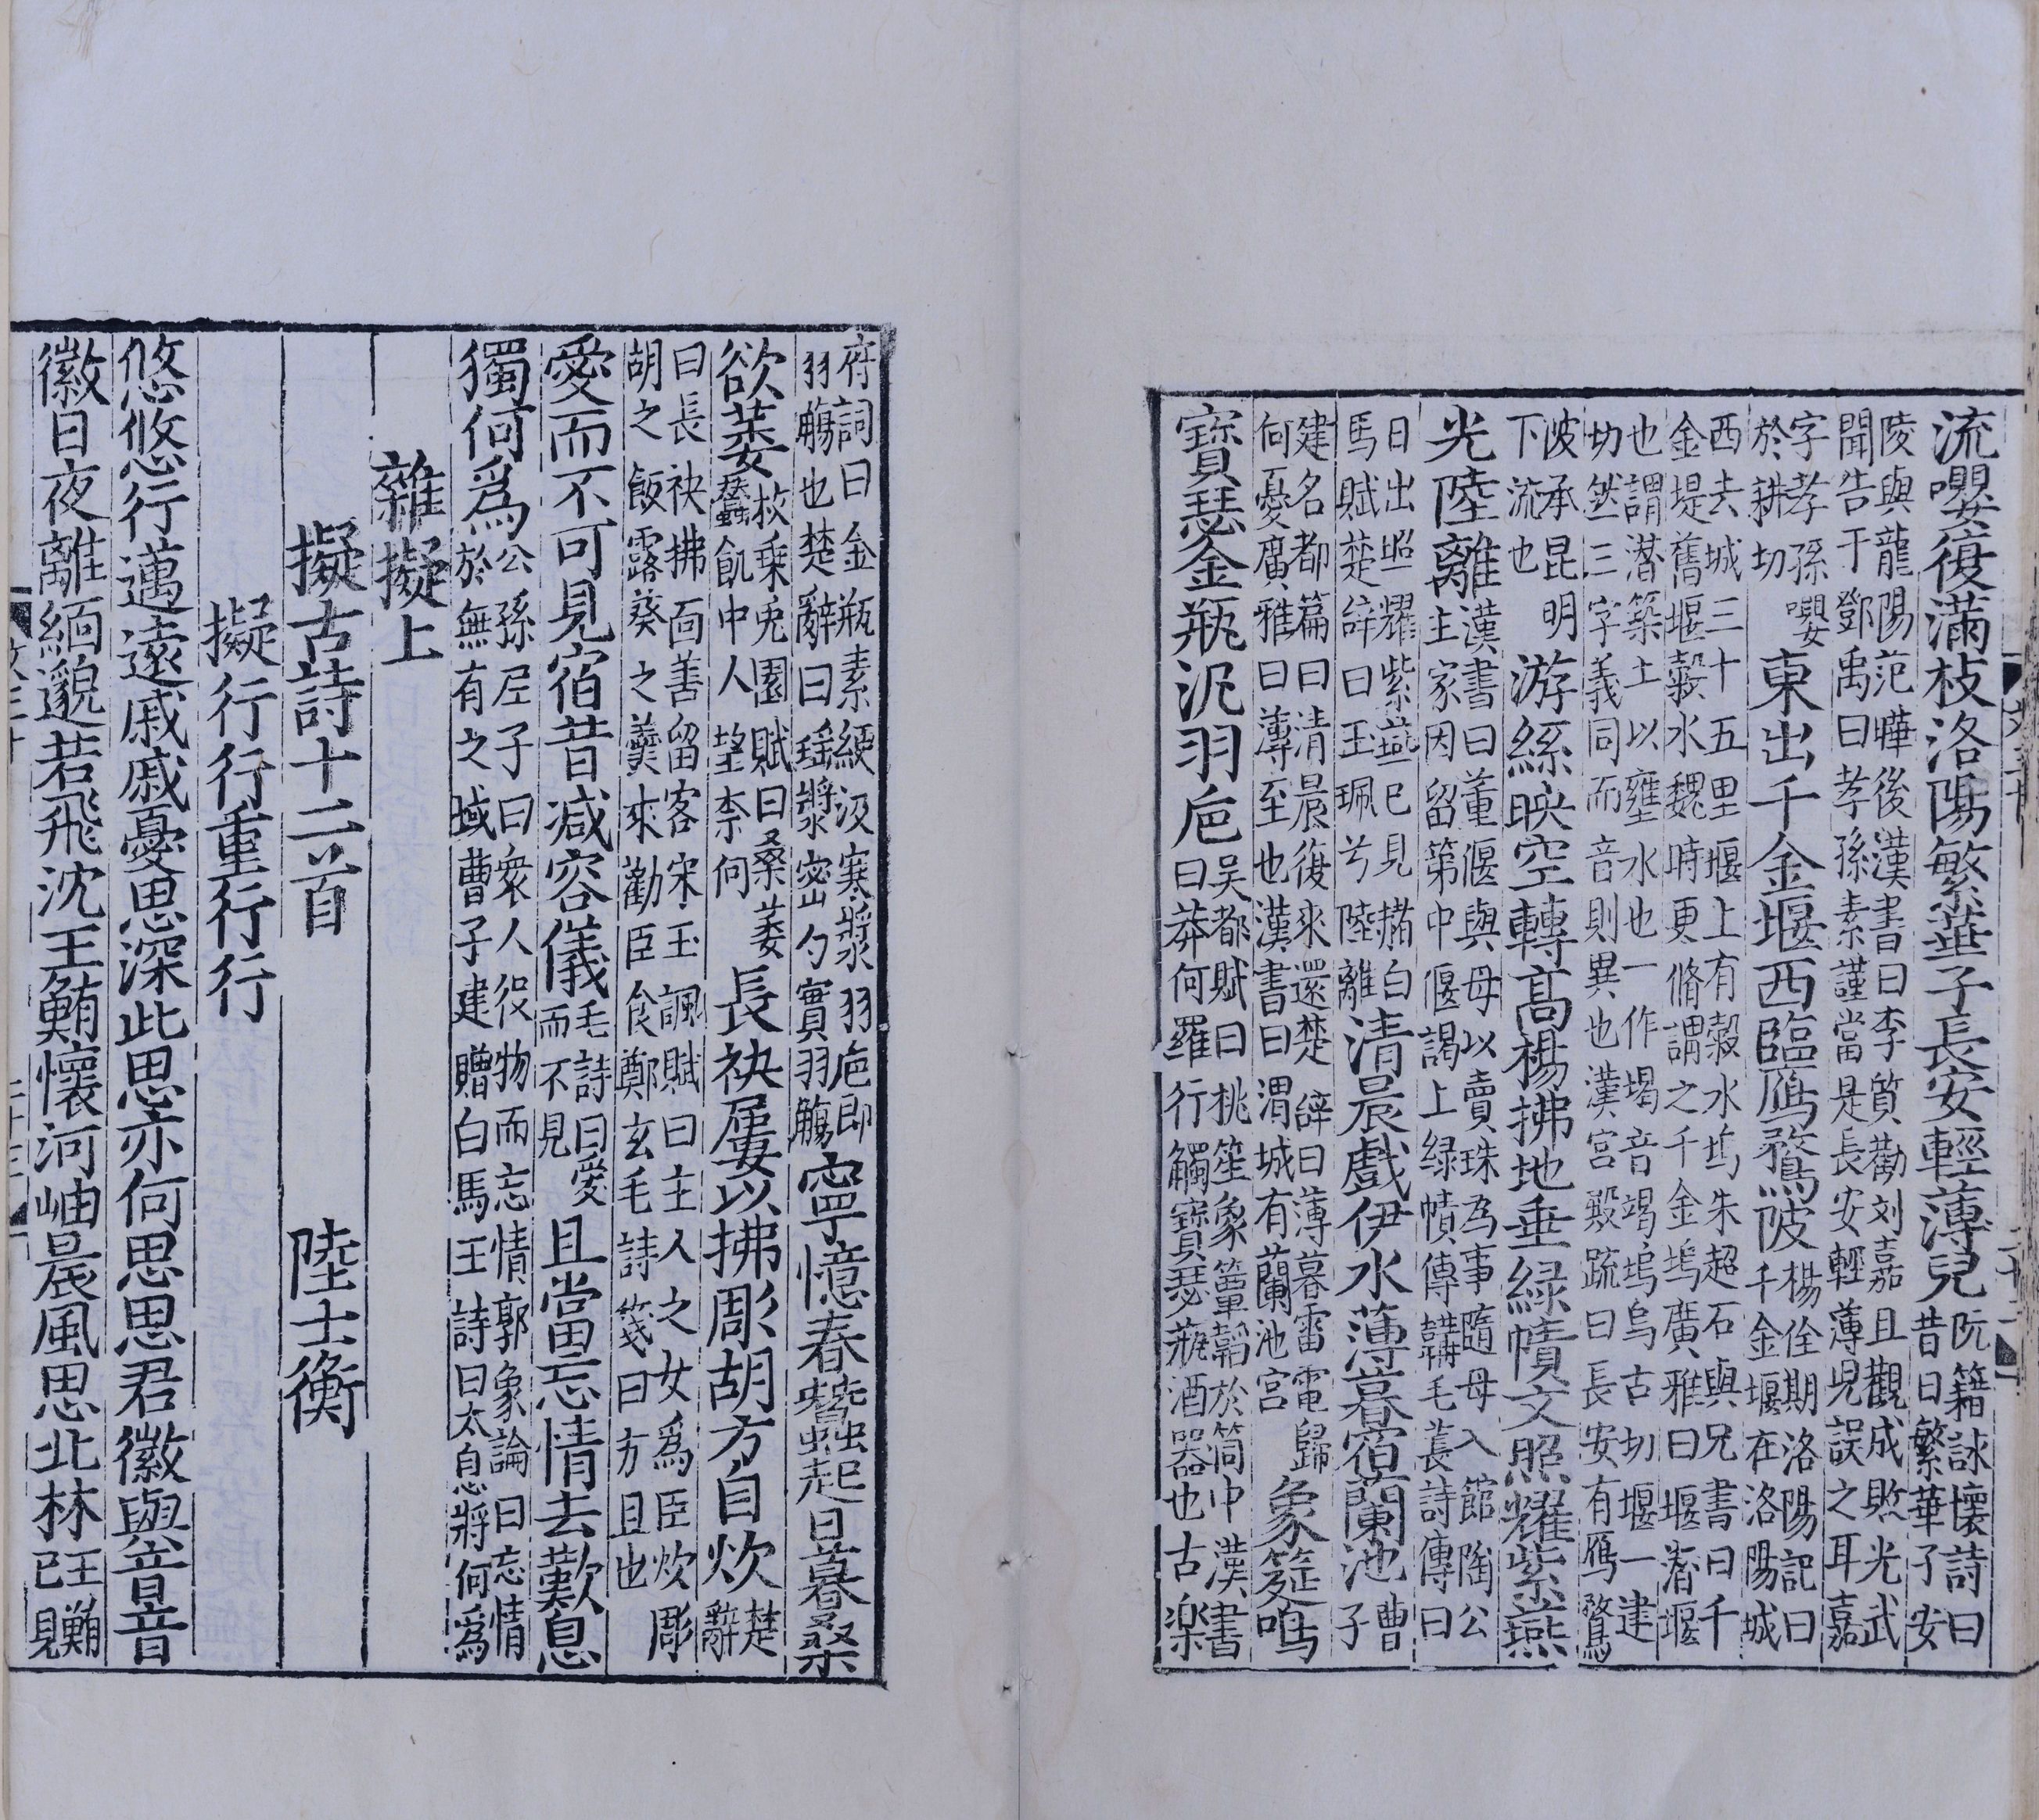 流嚶復滿枝洛陽繁華子長安輕薄兒阮籍詠懷詩曰昔日繁華子安
陵與龍陽范曄後漢書曰李質勸刘嘉且觀成敗光武
聞告于鄧禹曰孝孫素謹當是長安輕薄児誤之耳嘉
字孝孫嚶於耕切東出千金堰西臨鴈鶩陂楊佺期洛陽記曰千金堰在洛陽城
西去城三十五里堰上有穀水塢朱超石與兄書曰千
金堤舊堰穀水魏時更脩謂之千金塢廣雅曰堰潜堰
也謂潜築土以壅水也一作堨音竭塢烏古切堰一建
切然三字義同而音則異也漢宫殿疏曰長安有鴈鶩
陂承昆明下流也游絲映空轉髙楊拂地垂緑幘文照耀紫燕
光陸離漢書曰董偃與母以賣珠為事隨母入館陶公主家因留第中偃謁上緑幘傳韝毛萇詩傳曰
日出照耀紫燕已見赭白馬賦楚辞曰玉珮兮陸離清晨戲伊水薄暮宿蘭池曹子
建名都篇曰清晨復來還楚辞曰薄暮雷電歸何憂廣雅曰薄至也漢書曰渭城有蘭池宫象筵鳴
寶瑟金瓶汎羽巵吳都賦曰桃笙象簟韜於筒中漢書曰莽何羅行觸寶瑟瓶酒器也古楽
府詞曰金瓶素綆汲寒漿羽巵即羽觴也楚辭曰瑶漿蜜勺實羽觴寧憶春蠶起日暮桑
欲萎枚乗兎園賦曰桑萎蠶飢中人望柰何長袂屢以拂彫胡方自炊楚辭
曰長袂拂面善留客宋玉諷賦曰主人之女爲臣炊彫
胡之飯露葵之羹來勸臣食鄭玄毛詩箋曰方且也
愛而不可見宿昔减容儀毛詩曰愛而不見且當忘情去歎息
獨何爲公孫尼子曰衆人役物而忘情郭象論曰忘情於無有之域曹子建贈白馬王詩曰太息將何爲
雜擬上
擬古詩十二首　陸士衡
擬行行重行行
悠悠行邁遠戚戚憂思深此思亦何思思君徽與音音
徽日夜離緬邈若飛沈王鮪懷河岫晨風思北林王鮪已見